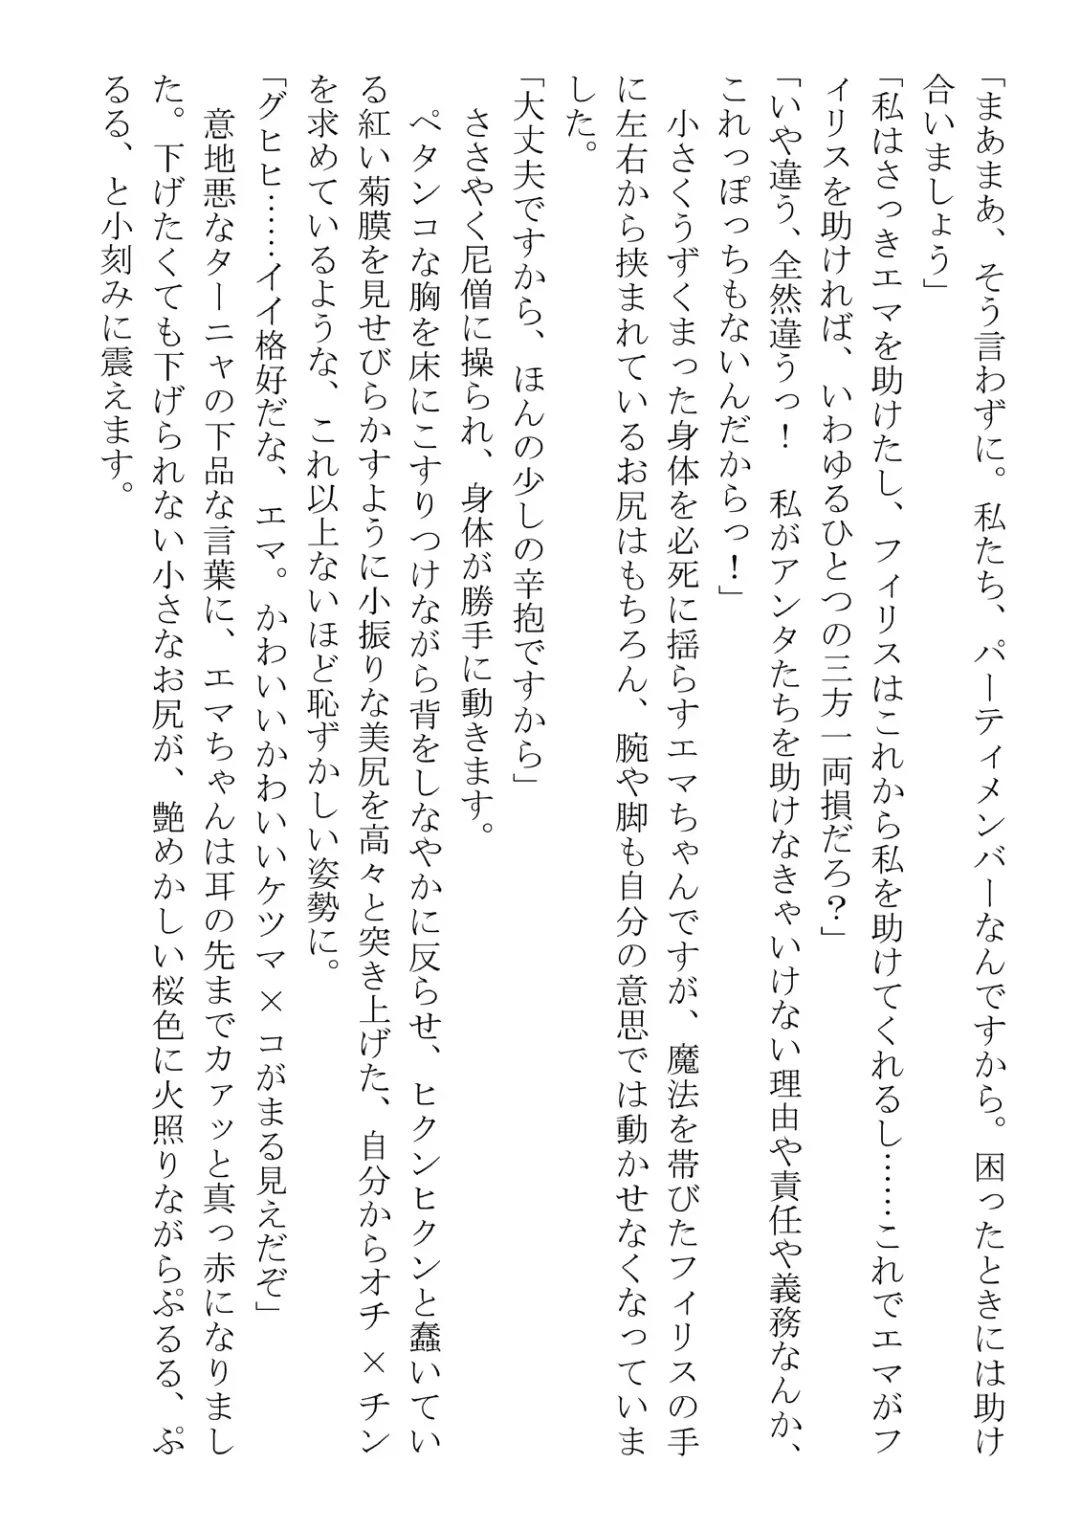 「まあまあ、そう言わずに。私たち、パーティメンバーなんですから。困ったときには助け
合いましょう」
「私はさっきエマを助けたし、フィリスはこれから私を助けてくれるし……これでエマがフ
ィリスを助ければ、いわゆるひとつの三方一両損だろ？」
「いや違う、全然違うっ！　私がアンタたちを助けなきゃいけない理由や責任や義務なんか、
これっぽっちもないんだからっ！」
　小さくうずくまった身体を必死に揺らすエマちゃんですが、魔法を帯びたフィリスの手
に左右から挟まれているお尻はもちろん、腕や脚も自分の意思では動かせなくなっていま
した。
「大丈夫ですから、ほんの少しの辛抱ですから」
　ささやく尼僧に操られ、身体が勝手に動きます。
　ペタンコな胸を床にこすりつけながら背をしなやかに反らせ、ヒクンヒクンと蠢いてい
る紅い菊膜を見せびらかすように小振りな美尻を高々と突き上げた、自分からオチ×チン
を求めているような、これ以上ないほど恥ずかしい姿勢に。
「グヒヒ……イイ格好だな、エマ。かわいいかわいいケツマ×コがまる見えだぞ」
　意地悪なターニャの下品な言葉に、エマちゃんは耳の先までカァッと真っ赤になりまし
た。下げたくても下げられない小さなお尻が、艶めかしい桜色に火照りながらぷるる、ぷ
るる、と小刻みに震えます。